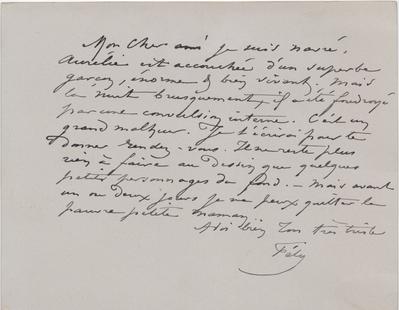 Mon cher ami je suis navré.
Aurélie est accouchée d'un superbe
garçon, énorme & bien vivant. Mais
la nuit brusquement, il a été foudroyé
par une convulsion interne. C'est un
grand malheur. Je t'écrirai pour te
donner rendez-vous. Il ne reste plus
rien à faire au Dessin que quelques
petits personnages de fond. — Mais avant
un ou deux jours je ne peux quitter la
pauvre petite maman
A toi bien Ton très triste